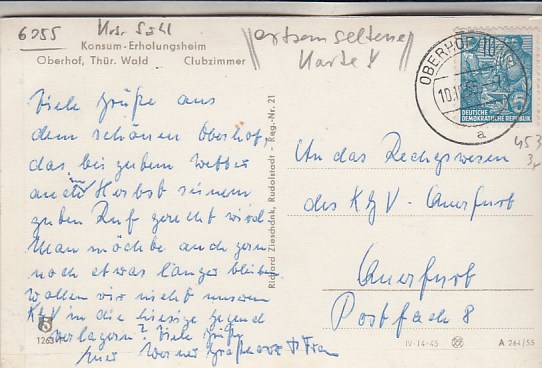 6055 Kr. Suhl
ortsam seltene
Karte
Konsum-Erholungsheim
Oberhof, Thür. Wald Clubzimmer
Viele Grüße aus
dem schönen Oberhof,
das bei gutem Wetter
auch im Herbst seinem
guten Ruf gerecht wird.
Man möchte auch gern
noch etwas länger bleiben.
Wollen wir nicht unseren
KKV in die hiesige Gegend
verlagern? Viele Grüße
Euer Werner u Frau
Richard Zieschank, Rudolstadt - Reg.-Nr. 21
OBERHOF
a
DEUTSCHE
DEMOKRATISCHE REPUBLIK
An das Rechtswesen
des KKV - Querfurt
Querfurt
Postfach 8
IV-14-45 A 264/55